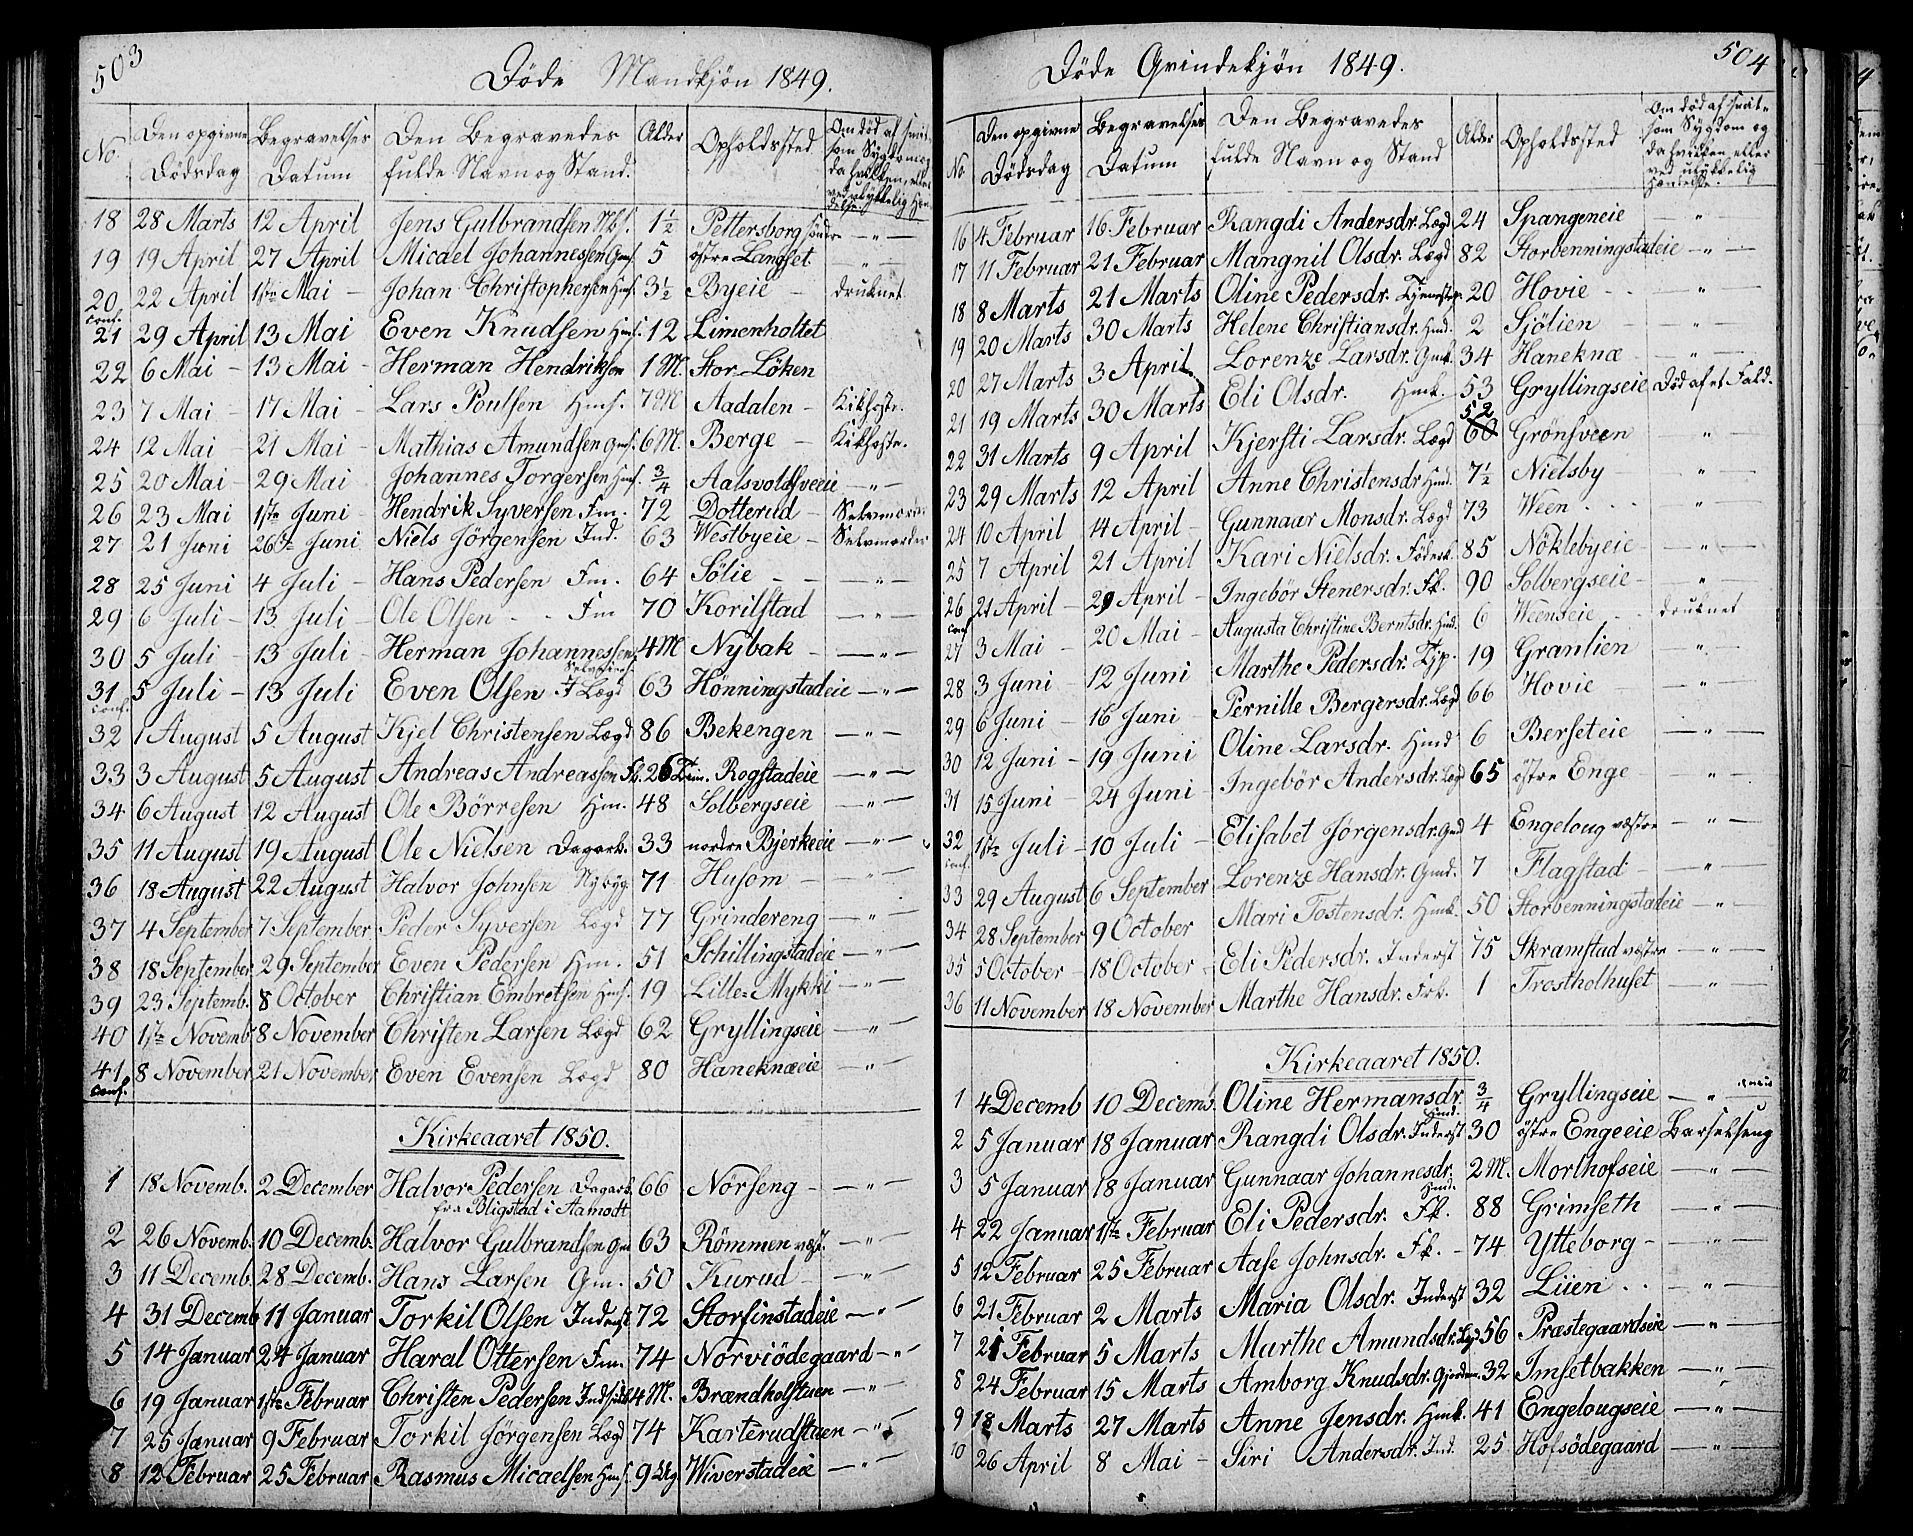 503
Döde Mandkjön 1849.
No Den opgivne Dödsdag Begravelses Datum Den Begravedes fulde Navn og Stand. Alder Opholdssted Om död af smitsom Sygdom og da hvilken, eller ved ulykkelig Hændelse.
18 28 Marts 12 April Jens Gulbrandsen 1½ Pettersborg söndre — " —
19 19 April 27 April Micael Johannessen Gms. 5 östre Langset — " —
20 22 April 1ste Mai – Johan Christophersen Hms. 3½ Byeie – druknet
conf.
21 29 April 13 Mai Even Knudsen Hms. 12 Limenholtet
22 6 Mai – 13 Mai – Herman Hendriksen 1 M. Stor-Löken
23 7 Mai – 17 Mai – Lars Poulsen Hms. 7 M Aadalen – Kikhoste.
24 12 Mai 21 Mai – Mathias Amundsen Gms. 6 M. Berge – Kikhoste.
25 20 Mai – 29 Mai – Johannes Torgersen Hms. ¾ Aalsvoldsveeie — " —
26 23 Mai 1ste Juni – Hendrik Syversen Fm. 72 Dotterud – Selvmorder
27 21 Juni 26de Juni Niels Jörgensen Ind. 63 Westbyeie – Selvmorder
28 25 Juni 4 Juli – Hans Pedersen Fm. 64 Sölie – – — " —
29 6 Juli – 13 Juli – Ole Olsen – . – Fm 70 Korilstad — " —
30 5 Juli – 13 Juli – Herman Johannessen 4 M Nybak – — " —
31 5 Juli – 13 Juli Even Olsen Lægd 63 Hönningstadeie — " —
conf.
32 1 August 5 August Kjel Christensen Lægd 86 Bekengen — " —
33 3 August 5 August Andreas Andreassen 26 Rogstadeie — " —
34 6 August 12 August Ole Börresen Hm. 48 Solbergseie — " —
35 11 August 19 August Ole Nielsen Dagarb. 33 nordre Bjerkeeie — " —
36 18 August 22 August Halvor Johnsen Nybyg. 71 Husom – — " —
37 4 September 7 September Peder Syversen Lægd 77 Grindereng — " —
38 18 September 29 September Even Pedersen Hm. 51 Schillingstadeie — " —
39 23 Septemb. 8 October Christian Embretsen Hms. 19 Lille=Mykki — " —
40 1ste Novemb. 8 November Christen Larsen Lægd 62 Gryllingseie — " —
41 8 November 21 November Even Evensen Lægd 80 Haneknæeie — " —
conf.
Kirkeaaret 1850.
1 18 Novemb. 2 December Halvor Pedersen Dagarb. 66 Nörseng – — " —
fra Bligstad i Aamodt
2 26 Novemb. 10 Decemb. Halvor Gulbrandsen Gm 63 Römmen væst. — " —
3 11 Decemb. 28 Decemb. Hans Larsen Gm. 50 Kurud – — " —
4 31 Decemb 11 Januar Torkil Olsen Inderst 72 Storfinstadeie — " —
5 14 Januar 24 Januar Haral Ottersen Fm. 74 Norviödegaard — " —
6 19 Januar 1ste Februar Christen Pedersen 4 M. Brændholstuen — " —
7 25 Januar 9 Februar Torkil Jörgensen Lægd 74 Karterudstuen — " —
8 12 Februar 25 Februar Rasmus Micaelsen Hms. 9 Wiverstadeie — " —
504
Döde Qvindekjön 1849.
No Den opgivne Dödsdag Begravelses Datum Den Begravedes fulde Navn og Stand Alder Opholdssted Om död af smitsom Sygdom og da hvilken eller ved ulykkelig Hændelse.
16 4 Februar 16 Februar Rangdi Andersdr. Lægd 24 Spangeneie — " —
17 11 Februar 21 Februar Mangnil Olsdr. Lægd 82 Storbenningstadeie — " —
18 8 Marts 21 Marts Oline Pedersdr. Tjenestp. 20 Hovie – . — " —
19 20 Marts 30 Marts Helene Christiansdr. Hmd. 2 Sjölien – — " —
20 27 Marts 3 April Lorenze Larsdr. Gmk. 34 Haneknæ – — " —
21 19 Marts 30 Marts Eli Olsdr. Hmk. 53 Gryllingseie Död af et Fald.
22 31 Marts 9 April Kjersti Larsdr. Lægd 60 52 Grönsveen — " —
23 29 Marts 12 April Anne Christensdr Hmd. 7½ Nielsby – — " —
24 10 April 14 April – Gunnaar Monsdr. Lægd 73 Ween . . . — " —
25 7 April 21 April Kari Nielsdr. Föderk. 85 Nöklebyeie – — " —
26 21 April – 29 April – Ingebör Stenersdr. Fk. 90 Solbergseie – — " —
conf
27 3 Mai – 20 Mai – Augusta Christine Berntsdr. Hmd. 6 Weenseie . . druknet
28 3 Juni – 12 Juni Marthe Pedersdr. Tjp. 19 Granlien — " —
29 6 Juni – 16 Juni – Pernille Bergersdr. Lægd 66 Hovie — " —
30 12 Juni – 19 Juni Oline Larsdr. Hmd 6 Berseteie — " —
31 15 Juni – 24 Juni – Ingebör Andersdr. Lægd 65 östre Enge – — " —
32 1ste Juli – 10 Juli – Elisabet Jörgensdr. Gmd 4 Engeloug væstre — " —
conf
33 29 August 6 September Lorenze Hansdr. Gmd. 7 Flagstad – — " —
34 28 September 9 October Mari Tostensdr. Hmk. 50 Storbenningstadeie — " —
35 5 October – 18 October – Eli Pedersdr. Inderst 75 Skramstad væstre — " —
36 11 November 18 November Marthe Hansdr. 1 Trostholhuset — " —
Kirkeaaret 1850.
1 4 Decemb 10 Decemb. Oline Hermansdr. Hmd. ¾ Gryllingseie — " —
2 5 Januar 18 Januar Rangdi Olsdr. Inderst 30 östre Engeeie Barselseng
3 5 Januar 18 Januar Gunnaar Johannesdr. Hmd. 2 M. Morthofseie — " —
4 22 Januar 1ste Februar Eli Pedersdr. Fk. 88 Grimseth — " —
5 12 Februar 25 Februar Aase Johnsdr. Fk. – 74 Ytteborg – — " —
6 21 Februar 2 Marts Maria Olsdr. Inderst 32 Lüen . . — " —
7 21 Februar 5 Marts Marthe Amundsdr. Lægd 56 Præstegaardseie — " —
8 24 Februar 15 Marts Amborg Knudsdr. 32 Imsetbakken — " —
9 18 Marts 27 Marts Anne Jensdr. Hmk. 41 Engelougseie — " —
10 26 April 8 Mai – Siri Andersdr. Ind. 25 Hofsödegaard — " —